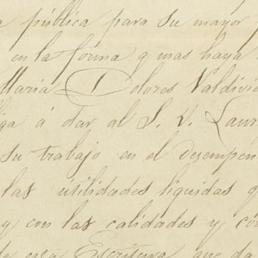 pública para su mayor
en la forma q mas haya
Maria Dolores Valdivi
iga á dar al S. V. Laur
su trabajo en el desempen
las utilidades liquidas q
y con las calidades y co
esta Escritura que da